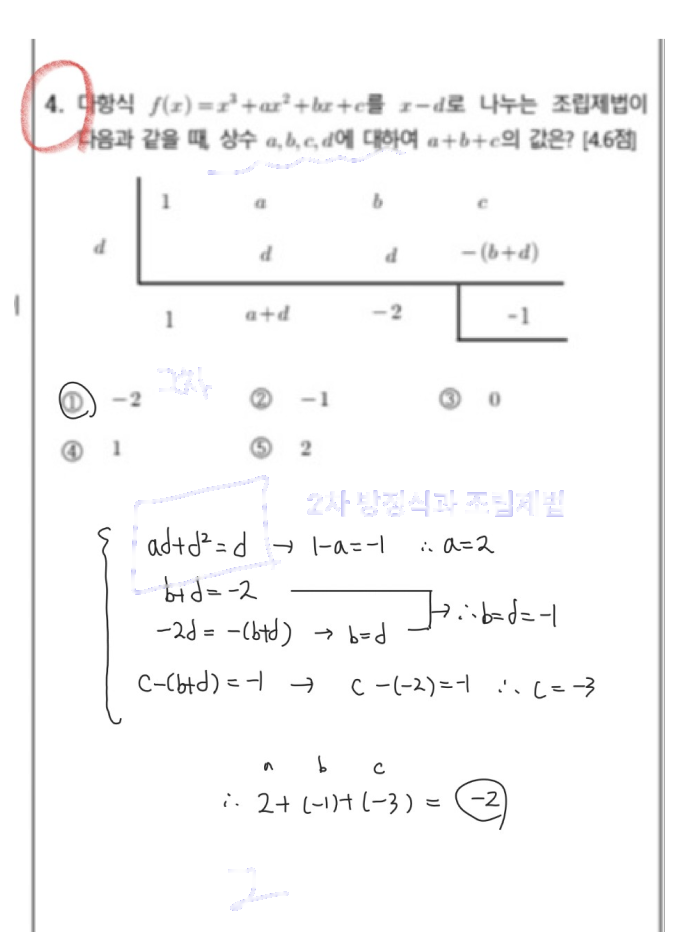 4. 다항식 f(x)=x³+ax²+bx+c를 x-d로 나누는 조립제법이
다음과 같을 때, 상수 a, b, c, d에 대하여 a+b+c의 값은? [4.6점]
1 a b c
d d d -(b+d)
1 a+d -2 -1
① -2 ② -1 ③ 0
④ 1 ⑤ 2
ad+d²=d → 1-a=-1 ∴ a=2
b+d=-2
-2d=-(b+d) → b=d → ∴ b=d=-1
c-(b+d)=-1 → c-(-2)=-1 ∴ c=-3
a b c
∴ 2+(-1)+(-3) = -2